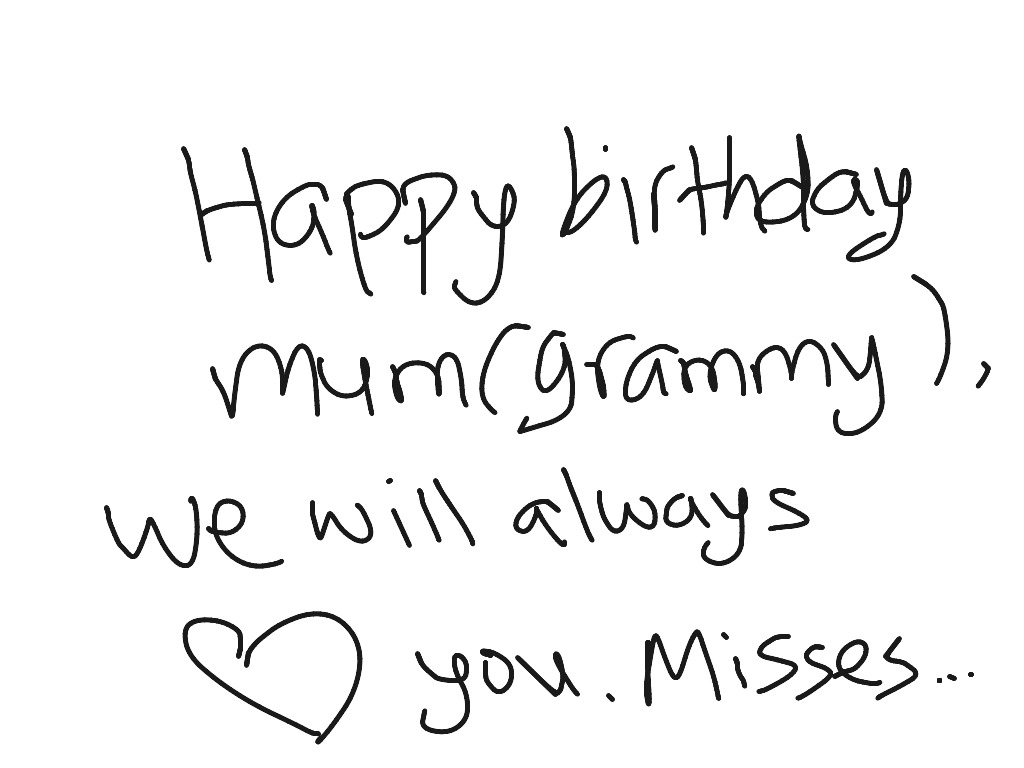 Happy birthday
mum(grammy),
we will always
♡ you. Misses...